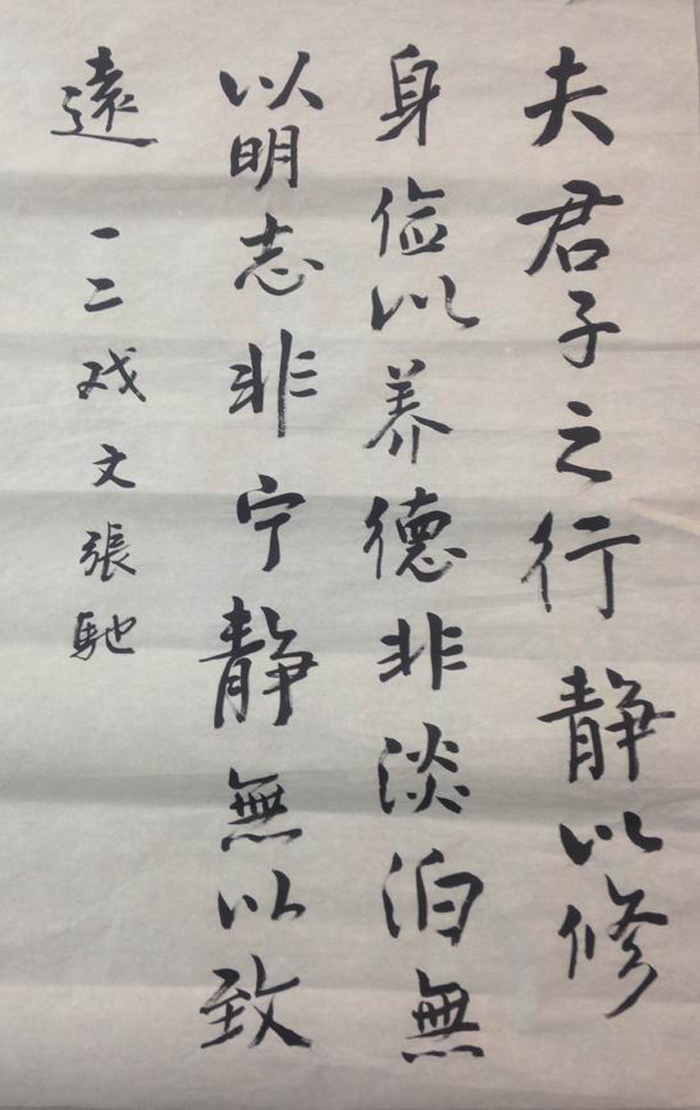 夫君子之行静以修
身俭以养德非淡泊無
以明志非宁静無以致
遠 一二戏文張馳